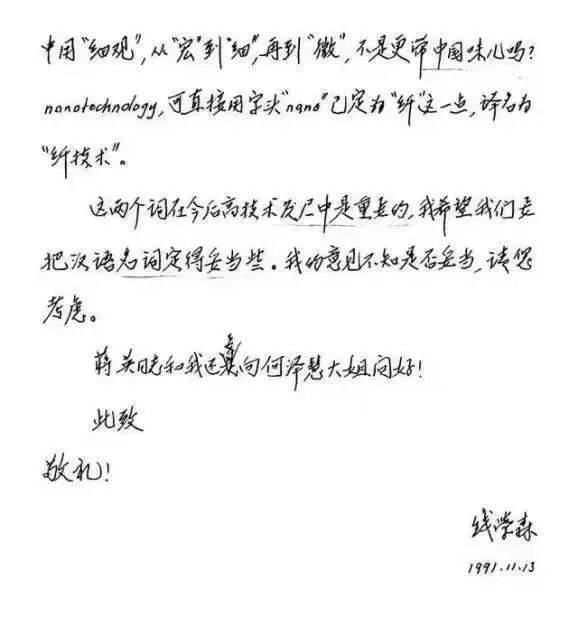 中用“细观”,从“宏”到“细”,再到“微”,不是更带中国味儿吗?
nanotechnology,可直接用字头“nano”已定为“纤”这一点,译名为
“纤技术”。
这两个词在今后高技术发展中是重要的,我希望我们要
把汉语名词定得妥当些。我的意见不知是否妥当,请您
考虑。
蒋英同志和我还要向何泽慧大姐问好!
此致
敬礼!
钱学森
1991.11.13